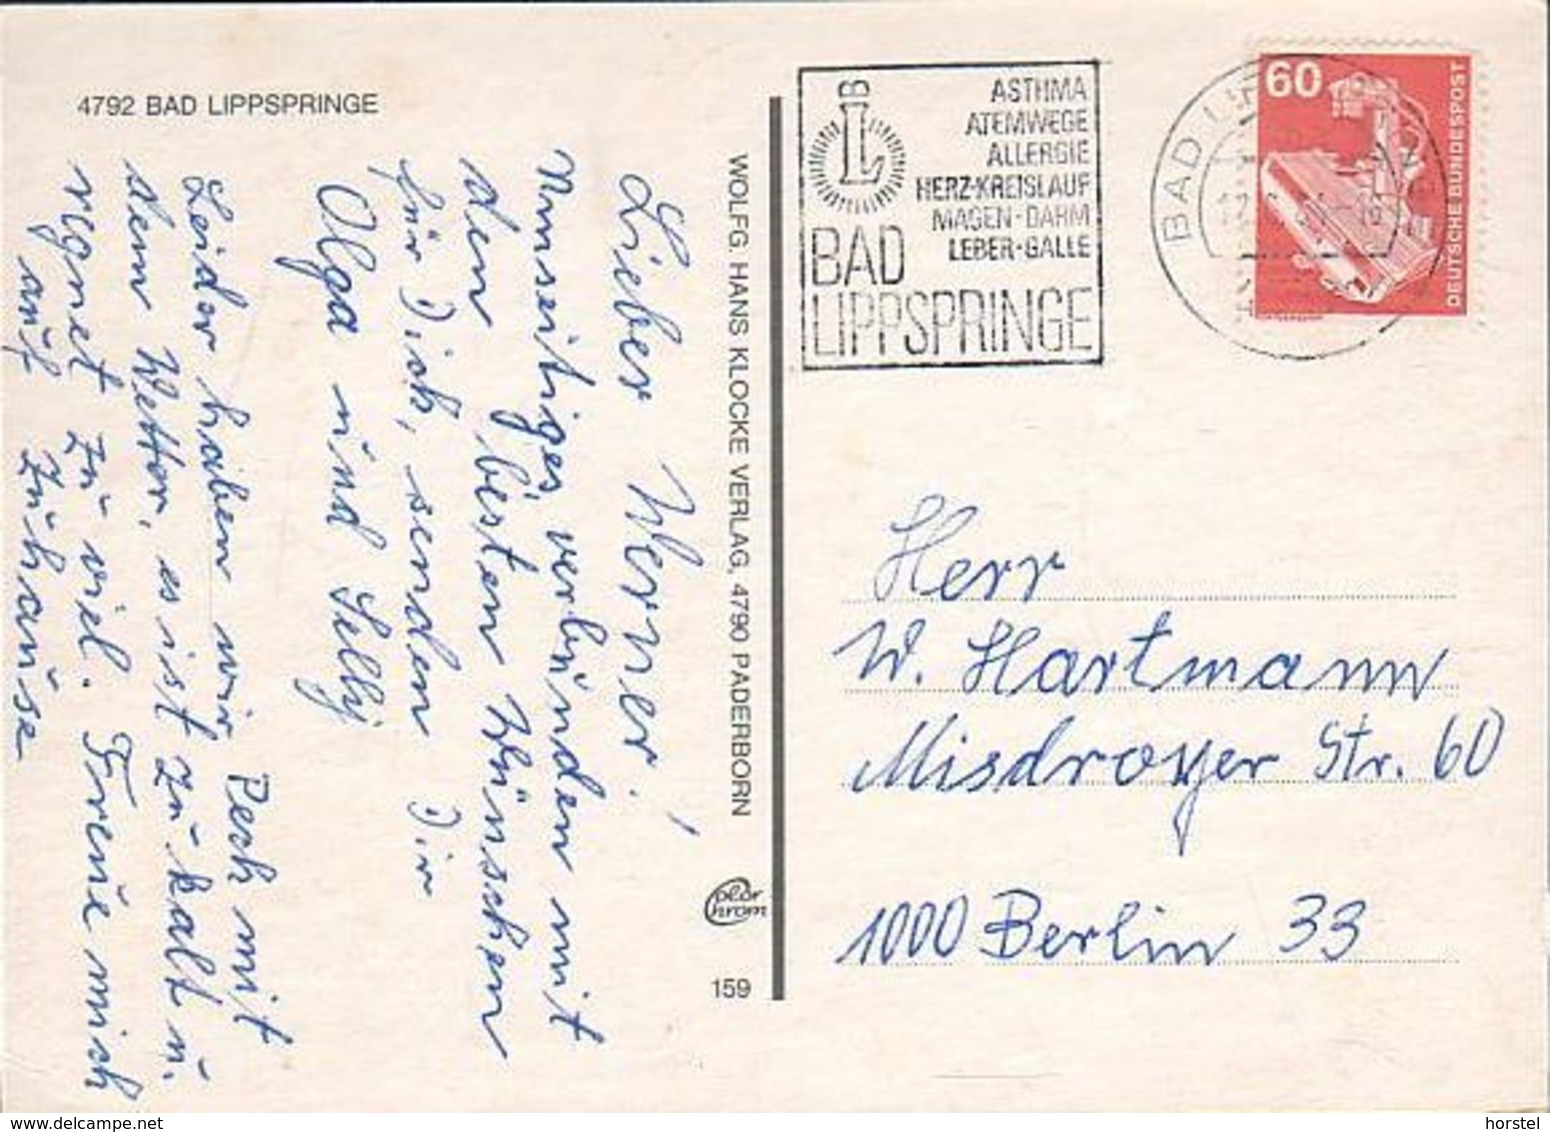 4792 BAD LIPPSPRINGE
Lieber Werner!
Umseitiges verbunden mit
den besten Wünschen
für Dich, senden Dir
Olga und Selly
Leider haben wir Pech mit
dem Wetter, es ist zu kalt u.
regnet zu viel. Freue mich
auf Zuhause
WOLFG HANS KLOCKE VERLAG, 4790 PADERBORN
Color
Chrom
159
LB
ASTHMA
ATEMWEGE
ALLERGIE
HERZ-KREISLAUF
MAGEN-DARM
LEBER-GALLE
BAD
LIPPSPRINGE
BAD
60
DEUTSCHE BUNDESPOST
Herr
W. Hartmann
Misdroyer Str. 60
1000 Berlin 33
www.delcampe.net
horstel